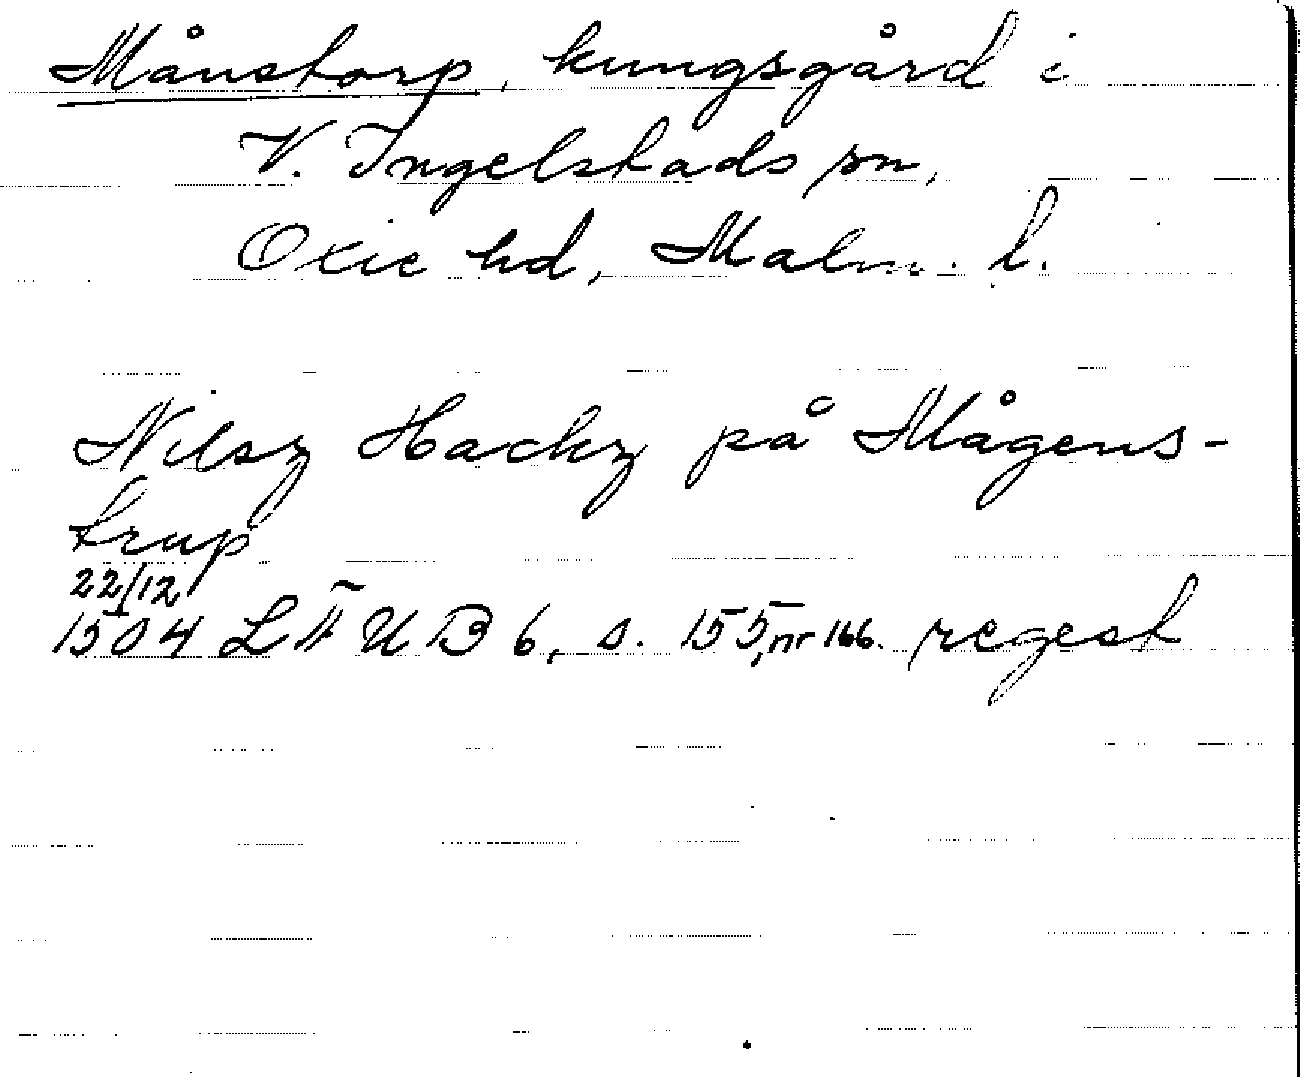 Månstorp, kungsgård i
V. Ingelstads sn,
Oxie hd, Malm. l.
Nilsz Hackz på Mågens-
trup
22/12
1504 LÄUB 6, s. 155, nr 166. regest